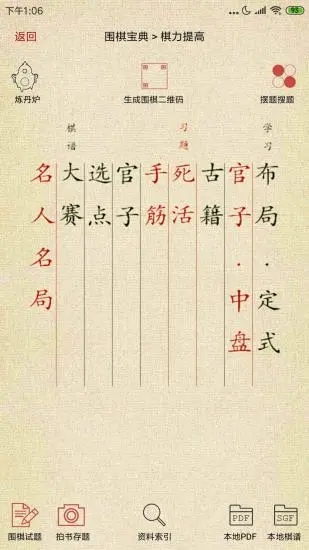 下午1:06
93
返回
围棋宝典 > 棋力提高
炼丹炉
生成围棋二维码
摆题搜题
学习
布局．定式
官子．中盘
习题
古籍
死活
手筋
官子
选点
棋谱
大赛
名人名局
围棋试题
拍书存题
资料索引
PDF
本地PDF
SGF
本地棋谱